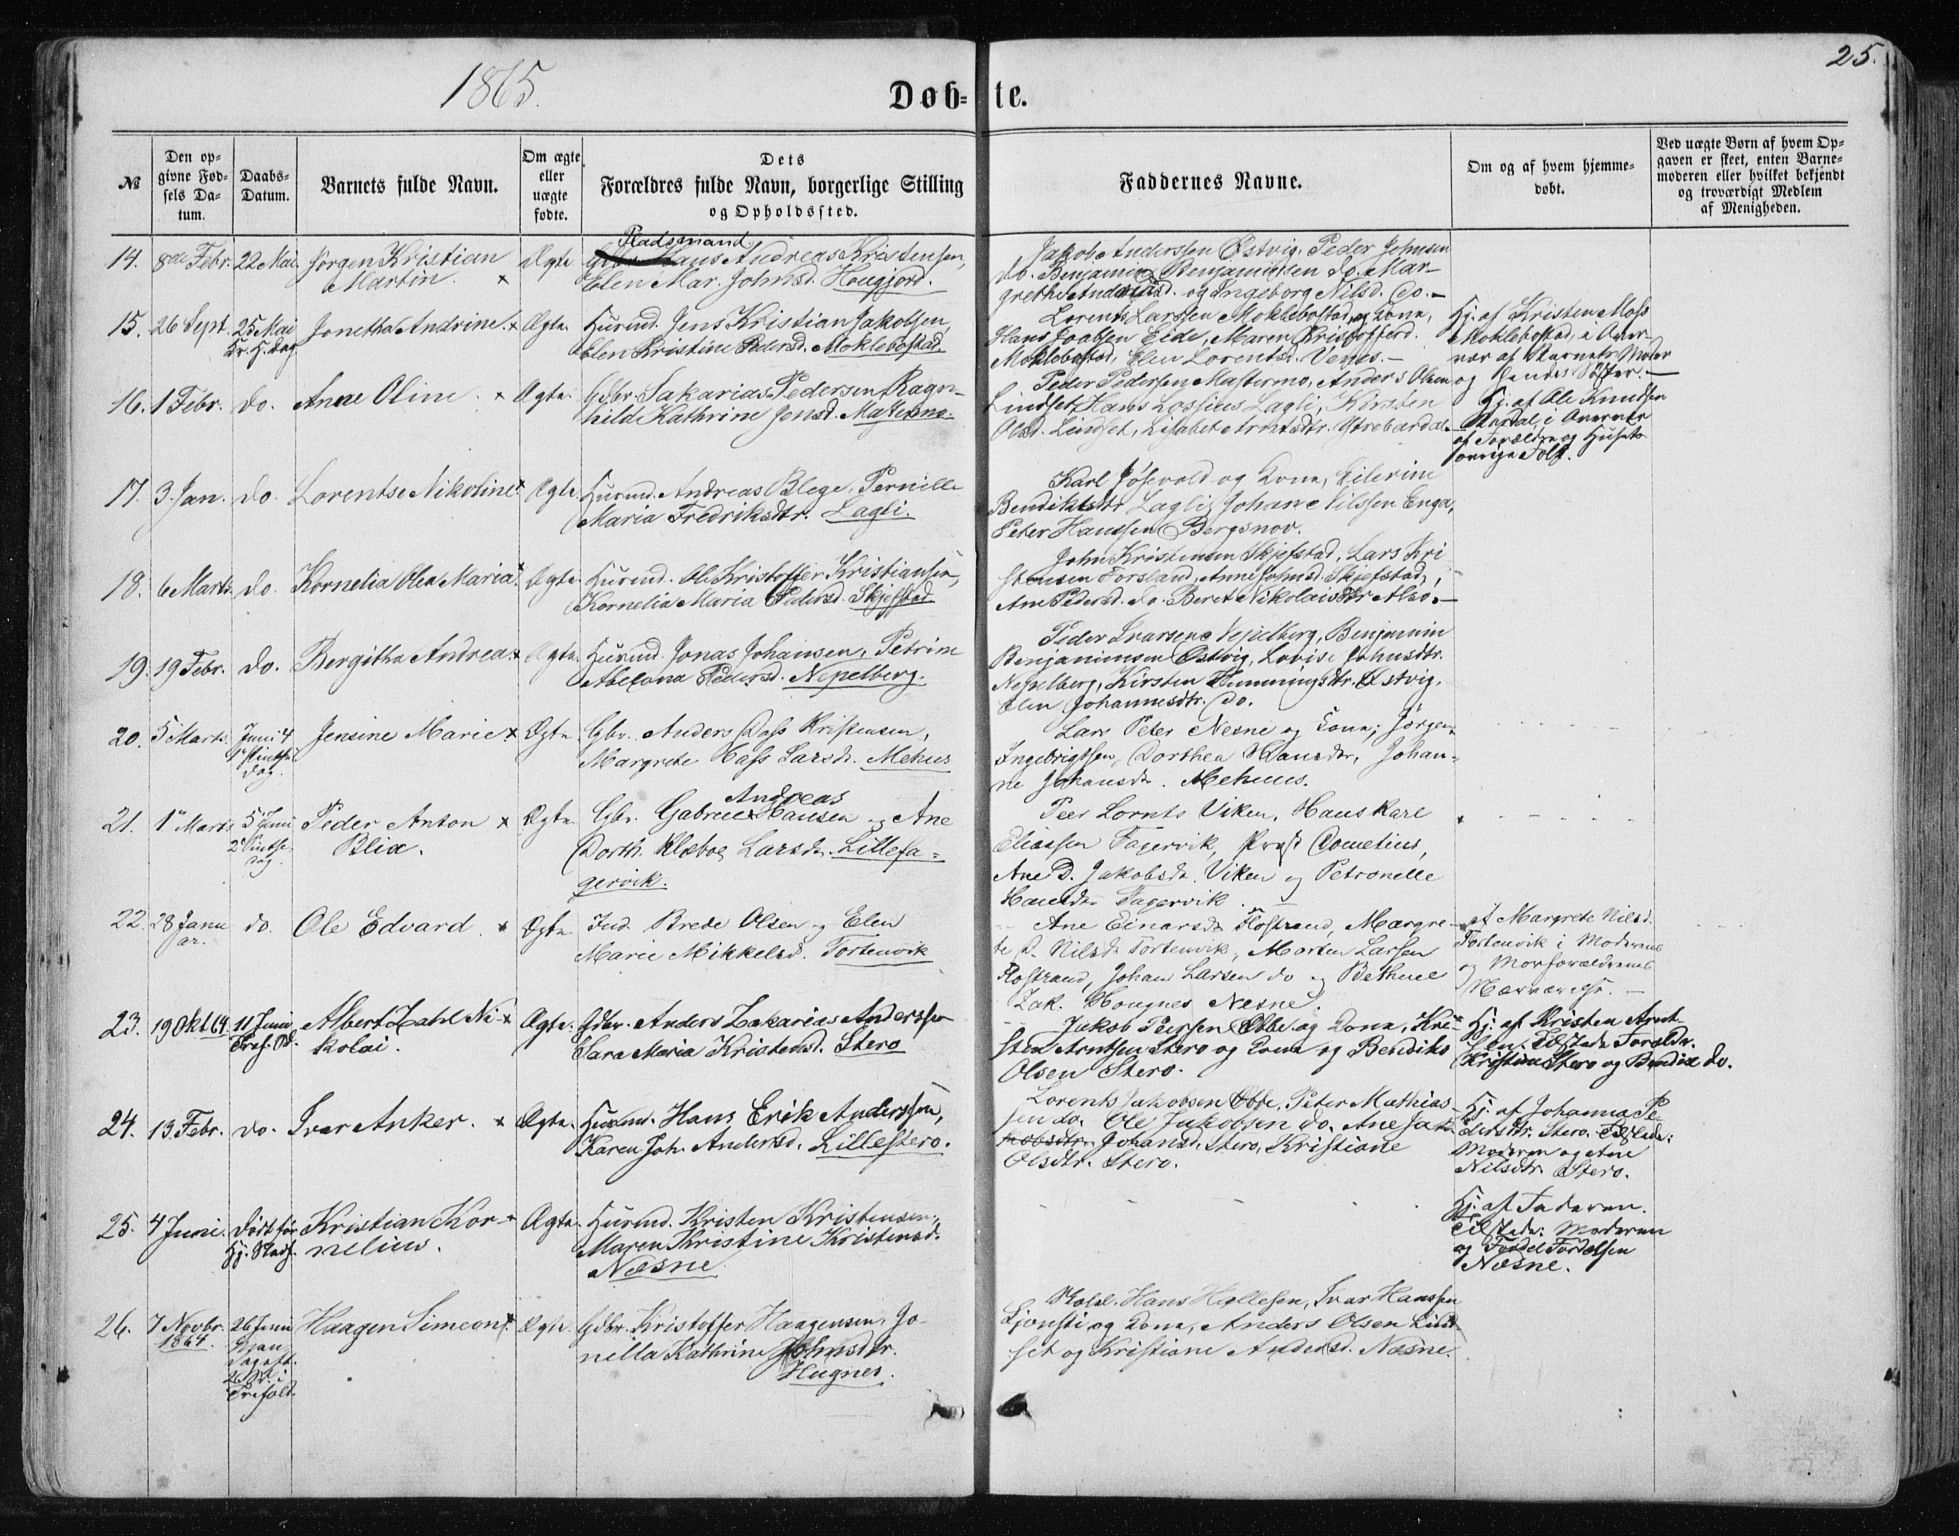 1865.
Døb-te.
25.
№
Den op-
givne Fød-
sels Da-
tum.
Daabs-
Datum.
Barnets fulde Navn.
Om ægte
eller
uægte
fødte.
Dets
Forældres fulde Navn, borgerlige Stilling
og Opholdssted.
Faddernes Navne.
Om og af hvem hjemme-
døbt.
Ved uægte Børn af hvem Op-
gaven er skeet, enten Barne-
moderen eller hvilket bekjendt
og troværdigt Medlem
af Menigheden.
14. 8de Febr. 22 Mai Jørgen Kristian
Martin. x
Ægte
Pladsmand
Hans Andreas Kristensen,
Elen Mar. Johnsd. Hougjord.
Jakob Anderssen Østvig, Peder Johnsen
do. Benjamin Benjaminsen do. Mar-
grethe og Ingeborg Nilsd. do. -
15. 26 Sept. 25 Mai
Kr. H. Dag
Jonetha Andrine x Ægte.
Husmd. Jens Kristian Jakobsen,
Elen Kristine Pedersd. Moklebostad.
Lorents Larssen Moklebostad og Kona,
Hans Eide, Maren Kristofferd.
Moklebostad, Elen Lorentsd. -
Hj. af Kristen Moss
Moklebostad, i Over-
vær af Barnets Moder
og hendes Søster. -
16. 1 Febr. do. Anne Oline. x Ægte.
Gbr. Sakarias Pedersen, Ragn-
hild Kathrine Jonsd. Mastermo.
Peder Pedersen Mastermo, Anders Olsen
Lindset, Hans Lossius Lagli, Kirsten
Olsd. Lindset, Lisabet
Hj. af Ole Knudsen
i Overvær
af Forældre og Husets
øvrige Folk.
17. 3. Jan. do. Lorentse Nikoline x Ægte.
Husmd. Andreas Blege, Pernille
Maria Fredriksdtr. Lagli.
Karl Jøsevold og Kona, Eilerine
Bendiktsdtr Lagli, Johan Nilssen Enga,
Peter Hanssen Bergsnov.
18. 6 Marts do. Kornelia Olea Maria x Ægte.
Husmd. Ole Kristoffer Kristiansen,
Kornelia Maria Pedersd. Skjefstad
John Kristensen Skjefstad, Lars Kri
stensen Forsland, Anne Johnsd. Skjefstad,
Ane Pedersd. do. Beret Nikolaisdtr Alsø. -
19. 19 Febr. do. Bergitha Andrea x Ægte.
Husmd. Jonas Johansen, Petrine
Abelona Pedersd. Nepelberg.
Peder Nepelberg, Benjamin
Benjaminsen Østvig, Lovise Johnsdtr.
Nepelberg, Kirsten Hemmingsdtr. Østvig,
Elen Johannesdtr. do.
20. 5 Marts. Juni 4
1ste Pintse
dag.
Jensine Marie x Ægte.
Gbr. Anders Dass Kristensen,
Margrete Hass Larsd. Mehus
Lars Peter Nesne og Kona, Jørgen
Ingebrigtsen, Dorthea Hansdr, Johan-
ne Johansd. Mehuus.
21. 1ste Marts 5te Juni
2 Pintse-
dag.
Peder Anton x
Blix.
Ægte.
Andreas
Gbr. Gabriel x Hansen og Ane
Dorth. Klæboe Larsd. Lillefa-
gervik.
Peer Lornts Viken, Hans Karl
Eliassen Fagervik, Prost Cometius,
Ane D. Jakobsd. Viken og Petronelle
Hansd. Fagervik.
22. 28 Janu
ar.
do. Ole Edvard. x Ægte.
Ind. Brede Olsen og Elen
Marie Mikkelsd. Tortenvik
Ane Einarsd. Flostrand, Margre-
te D. Nilsd. Tortenvik, Morten Larsen
Flostrand, Johan Larsen do og Bethuel
Zak. Hougnes Nesne.
af Margrete Nilsd.
Tortenvik i Moderens
og Morforældrenes
Nærværelse. -
23. 19 Okt. 64. 11 Juni
Tref. Sd.
Albert Zahl Ni- x
kolai.
Ægte.
Gdbr. Anders Zakarias Anderssen
Sara Maria Kristensd. Stero
Jakob Peersen Ebbe og Kona, Kri-
sten Arntsen Stero og Kona og Bendiks
Olsen Stero.
Hj. af Kristen Arnt
sen. Tilstede Foreldr.
Kristian Stero og Bendix do.
24. 13 Febr. do. Ivar Anker. x Ægte.
Husmd. Hans Erik Anderssen,
Karen Joh. Andersd. Lillestero.
Lorents Jakobsen Ebbe, Peter Mathias
sen do. Ole Jakobsen do. Ane Jak
kobsdtr. Johansd. Stero, Kristiane
Olsdtr. Stero.
Hj. af Johanna Pe
dersdtr. Stero. Tilstede:
Moderen og Ane
Nilsdtr. Stero.
25. 4 Juni. død før
Hj. Stadf.
Kristian Kor- x
nelius.
Ægte.
Husmd. Kristen Kristensen,
Maren Kristine Kristensd.
Næsne.
Hj. af Faderen.
Tilstede: Moderen
og Tordel Tordelsen
Næsne.
26. 7 Novbr.
1864.
26 Juni
Man
dag eft.
2 Sd. i
Trefold.
Haagen Simeon x Ægte.
Gdbr. Kristoffer Haagensen, Jo-
nilla Kathrine Johnsdtr.
Hugnes.
Hans Hallesen, Ivar Hanssen
og Kona, Anders Olsen Lind-
set og Kristiane Andersd. Næsne.